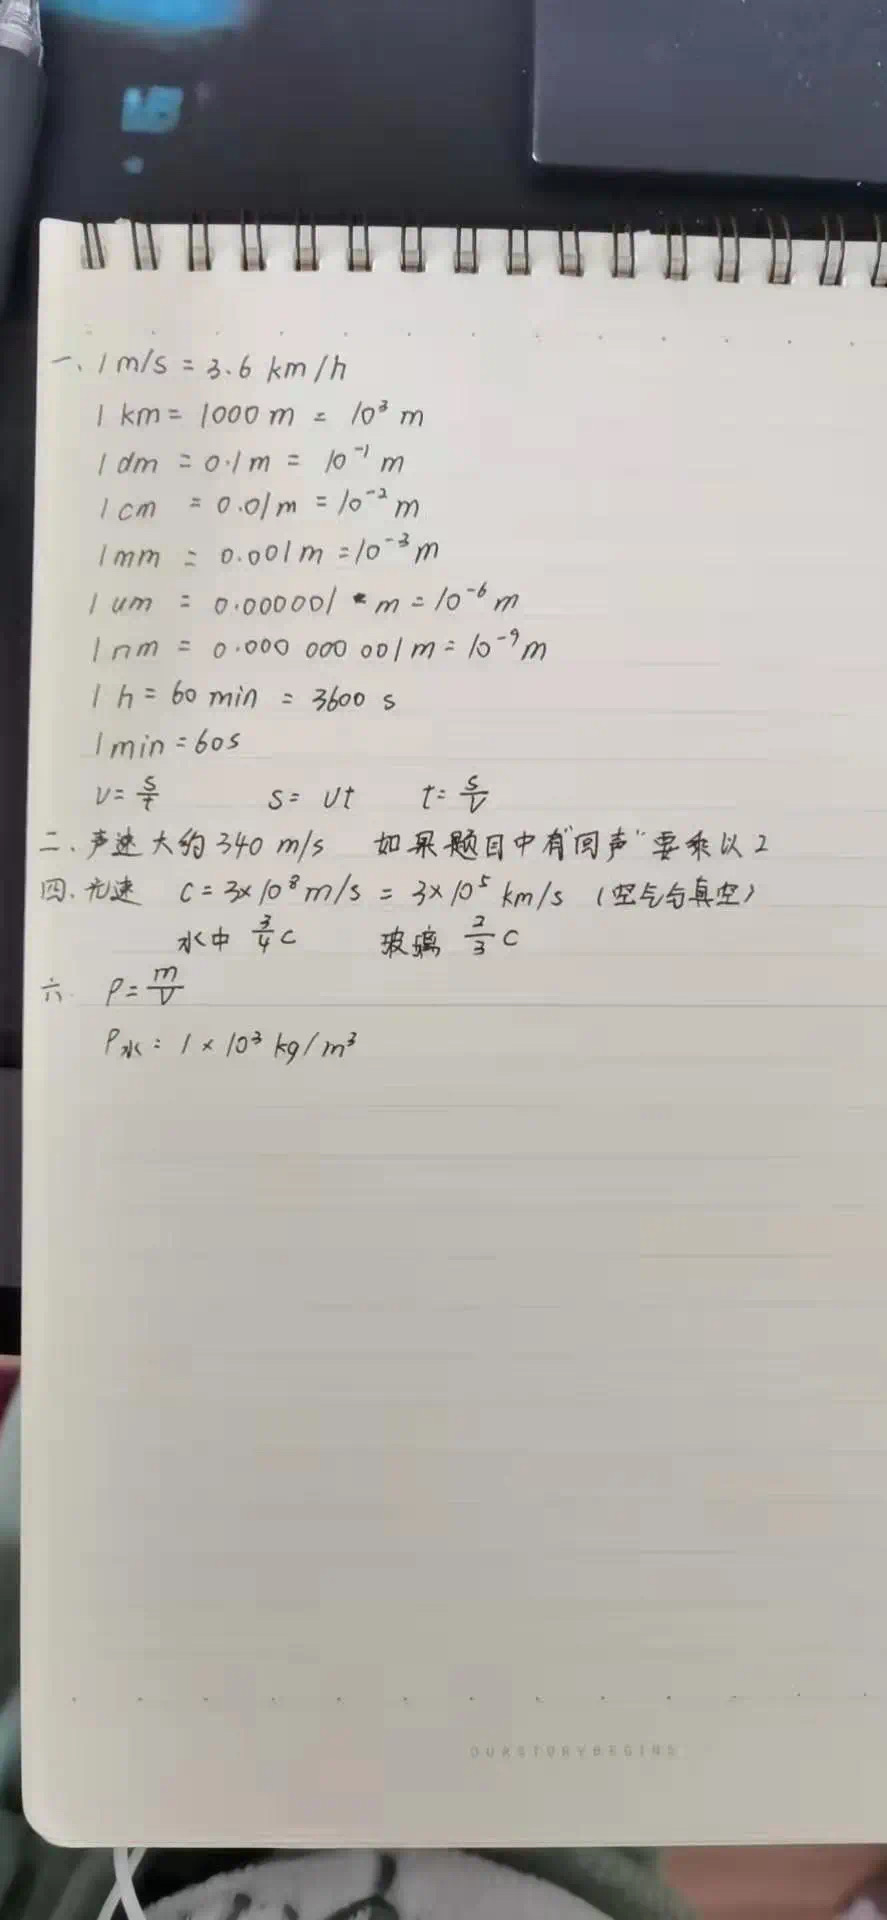 一、1 m/s = 3.6 km/h
1 km = 1000 m = 10³ m
1 dm = 0.1 m = 10⁻¹ m
1 cm = 0.01 m = 10⁻² m
1 mm = 0.001 m = 10⁻³ m
1 um = 0.000001 m = 10⁻⁶ m
1 nm = 0.000 000 001 m = 10⁻⁹ m
1 h = 60 min = 3600 s
1 min = 60 s
v = s/t s = vt t = s/v
二、声速大约 340 m/s 如果题目中有"回声"要乘以 2
四、光速 c = 3×10⁸ m/s = 3×10⁵ km/s (空气与真空)
水中 3/4 c 玻璃 2/3 c
六、ρ = m/V
ρ水 = 1 × 10³ kg/m³
OURSTORYBEGINS